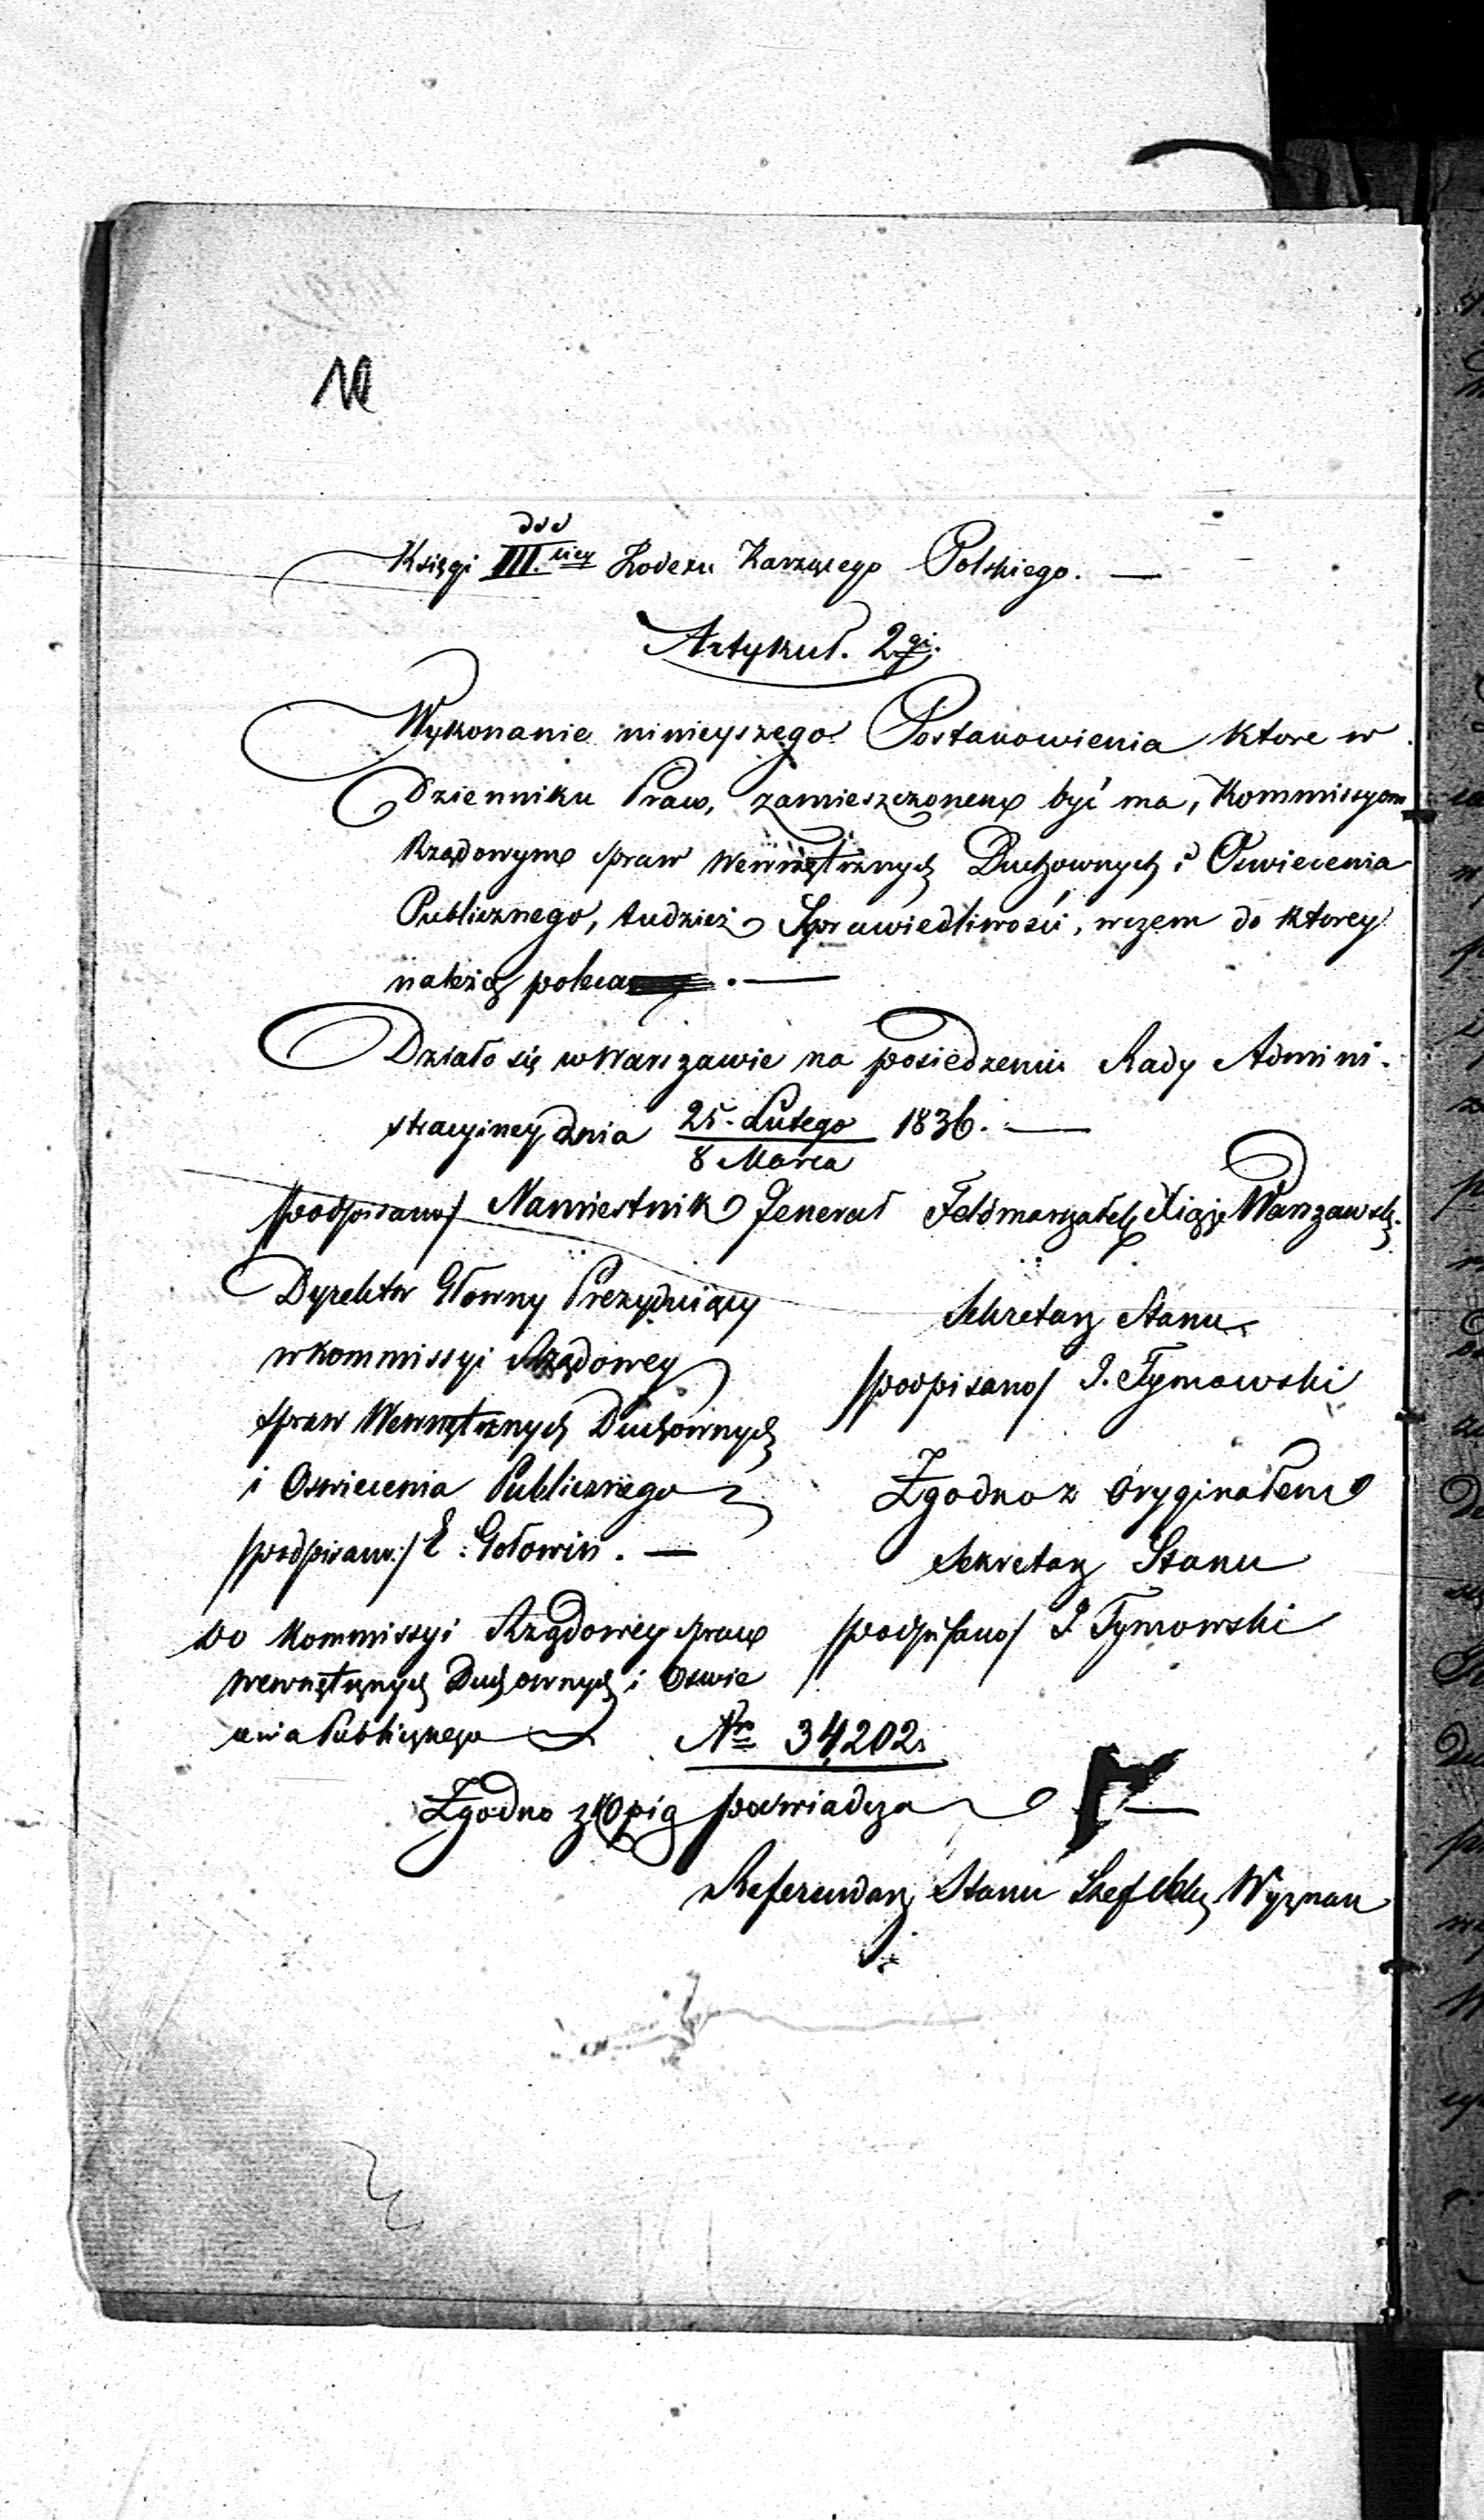 Księgi III.ciey Kodexu Karzącego Polskiego. —
Artykuł. 2gi.
Wykonanie ninieyszego Postanowienia ktore w
Dzienniku Praw, zamieszczonem być ma, Kommissyom
Rządowym spraw Wewnętrznych Duchownych i Oswiecenia
Publicznego, tudzież Sprawiedliwości, wczem do ktorey
należy, poleca . —
Działo się w Warszawie na posiedzeniu Rady Admini-
stracyiney dnia 25. Lutego 1836. —
8 Marca
/podpisano/ Namiestnik Jenerał Feldmarszałek Xiążę Warszawsk.
Dyrektor Głowny Prezyduiący
w Kommissyi Rządowey
spraw Wewnętrznych Duchownych
i Oswiecenia Publicznego
/podpisano:/ E. Gołowin. —
Sekretarz Stanu
/podpisano/ J. Tymowski
Zgodno z Oryginałem
Sekretarz Stanu
/podpisano/ J. Tymowski
Do Kommissyi Rządowey spraw
Wewnętrznych Duchownych i Oswie
cenia Publicznego
Nro 34,202.
Zgodno z Kopią poswiadcza
Referendarz Stanu Szef Wyznan